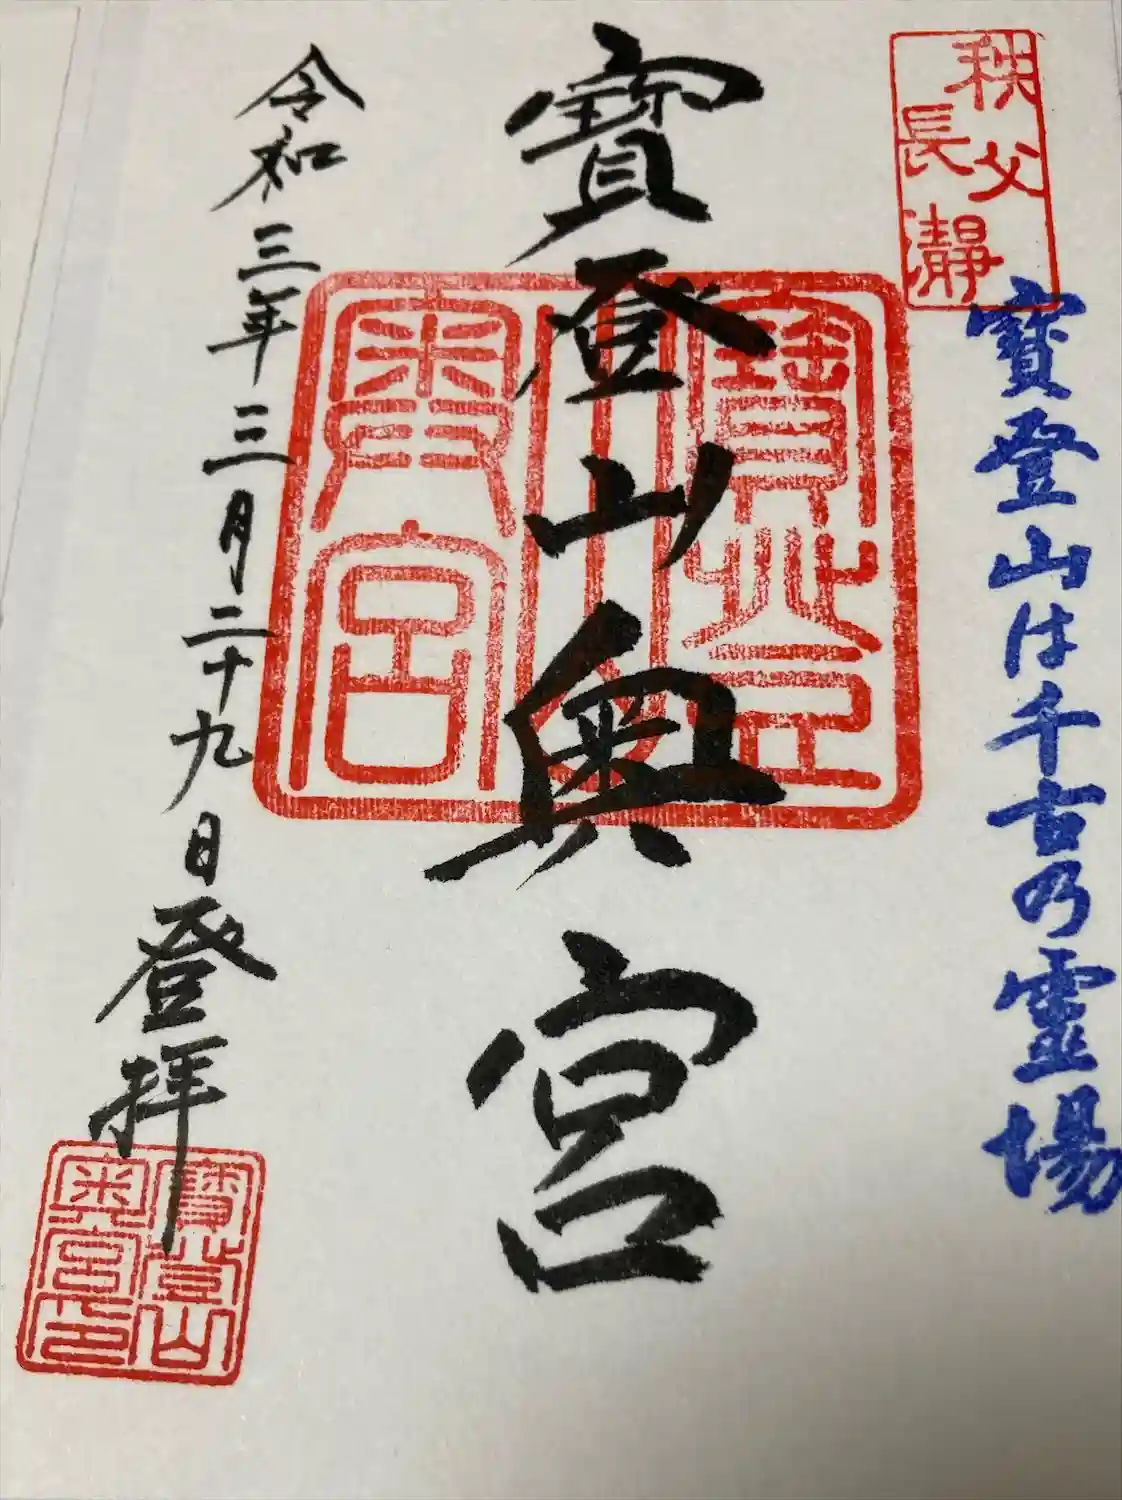 秩父
長瀞
寶登山は千古乃霊場
寶登山奥宮
寶登山奥宮
令和三年三月二十九日登拝
寶登山
奥宮印